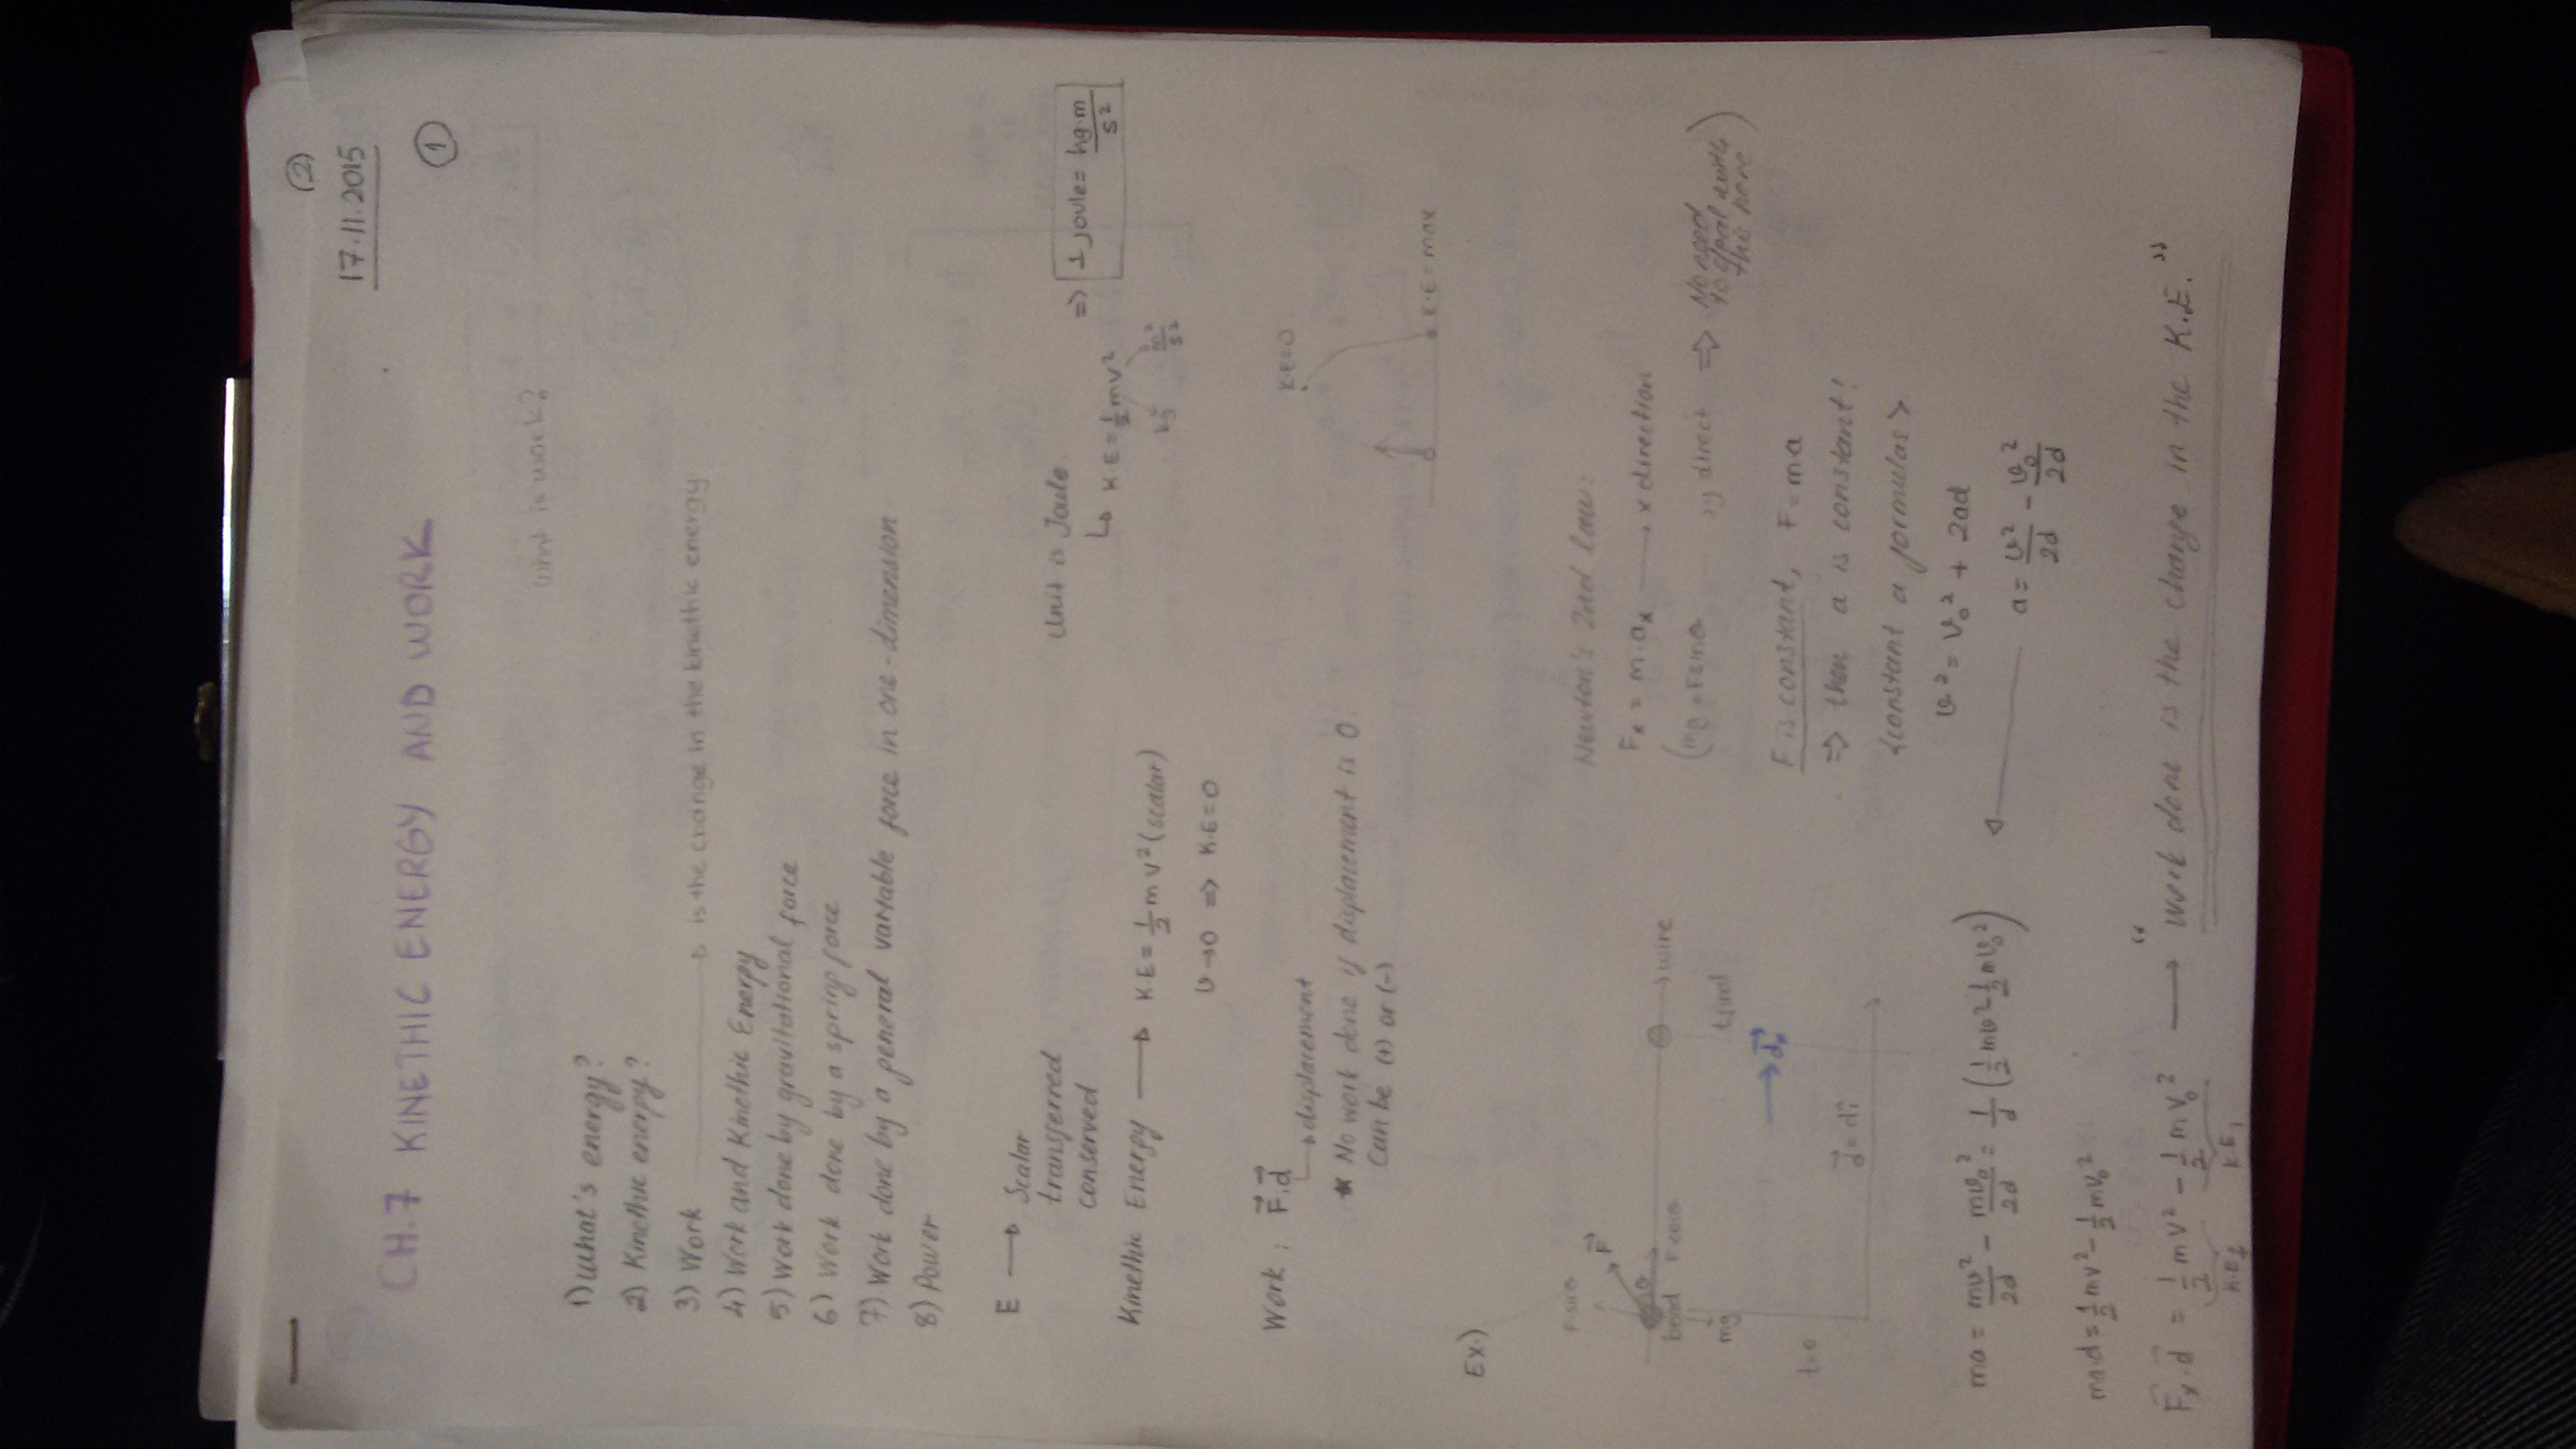 (2)
17.11.2015
CH.7 KINETHIC ENERGY AND WORK
(1)
what is work?
1) what's energy?
2) Kinethic energy?
3) Work → is the change in the kinethic energy
4) Work and Kinethic Energy
5) Work done by gravitational force
6) Work done by a spring force
7) Work done by a general variable force in one-dimension
8) Power
E → Scalar
transferred
conserved
Unit is Joule
↳ K.E = 1/2 mv²
kg m²/s²
⇒ 1 joule = kg.m/s²
Kinethic Energy → K.E = 1/2 m v² (scalar)
v→0 ⇒ K.E=0
Work : F⃗.d⃗
→ displacement
* No work done if displacement is 0.
Can be (+) or (-)
K.E=0
K.E = max
Ex.)
F sinθ
F⃗
θ
bead F cosθ
wire
mg
t final
d⃗ₓ
t=0
d⃗ = dî
Newton's 2nd law:
Fₓ = m.aₓ → x direction
(mg = Fsinθ y direct ⇒ No need
to deal with
this here)
F is constant, F = ma
⇒ then a is constant!
<constant a formulas>
v² = v₀² + 2ad
a = v²/2d - v₀²/2d
ma = mv²/2d - mv₀²/2d = 1/d (1/2 mv² - 1/2 mv₀²)
ma.d = 1/2 mv² - 1/2 mv₀²
F⃗ₓ.d⃗ = 1/2 mv² - 1/2 mv₀² → "work done is the change in the K.E."
K.E f K.E i